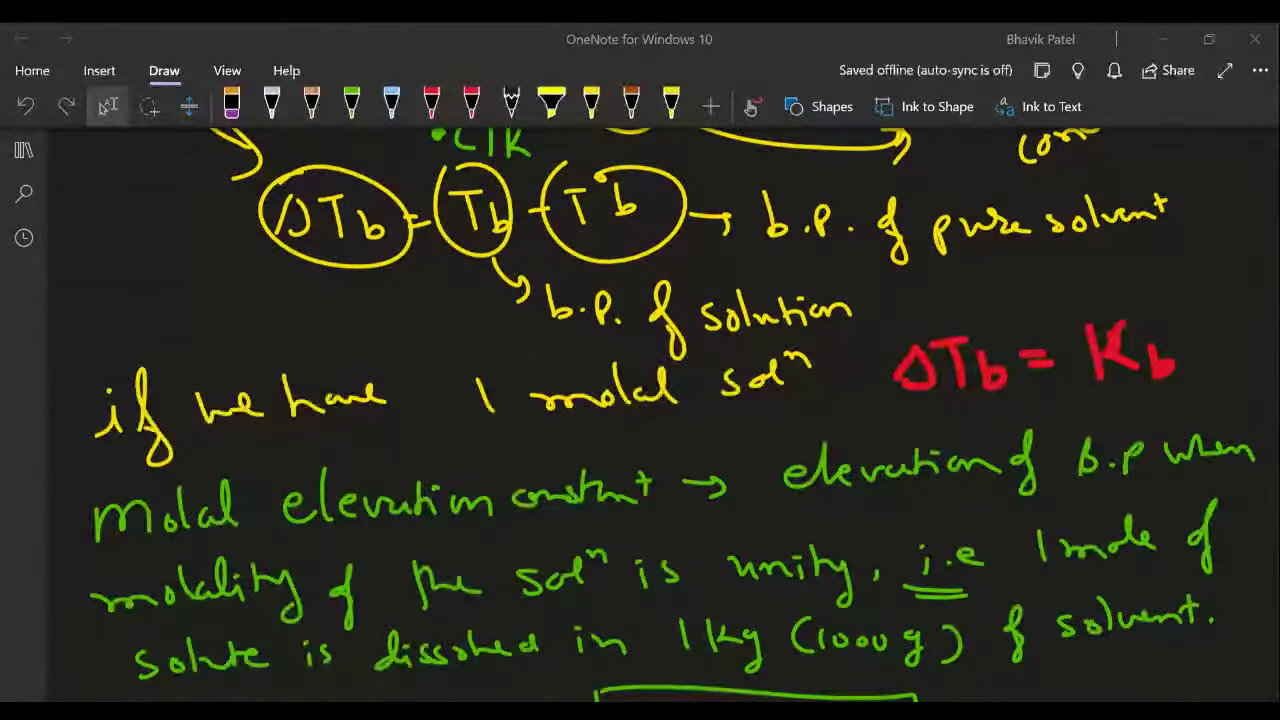 OneNote for Windows 10
Bhavik Patel
Home Insert Draw View Help
Saved offline (auto-sync is off)
Share
Shapes
Ink to Shape
Ink to Text
ΔTb = Tb - T°b → b.p. of pure solvent
b.p. of solution
if we have 1 molal solⁿ
ΔTb = Kb
Molal elevation constant → elevation of b.p when
molality of the solⁿ is unity, i.e 1 mole of
solute is dissolved in 1 kg (1000 g) of solvent.